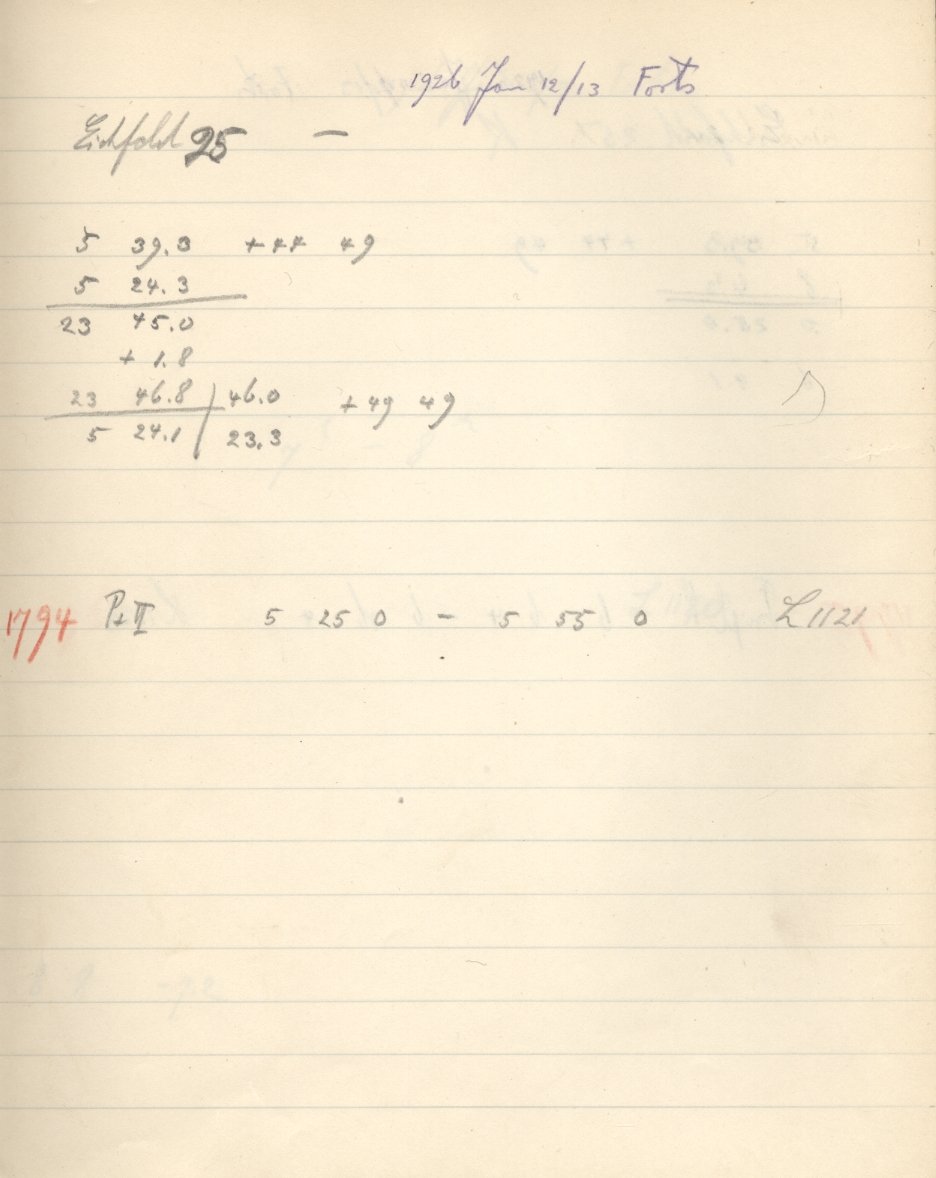 1926 Jan 12/13 Forts
Eichfeld 25 —
5 39.3 +44 49
5 24.3
23 45.0
+ 1.8
23 46.8 | 46.0 +49 49
5 24.1 | 23.3
1794 Pt II 5 25 0 – 5 55 0 L 1121